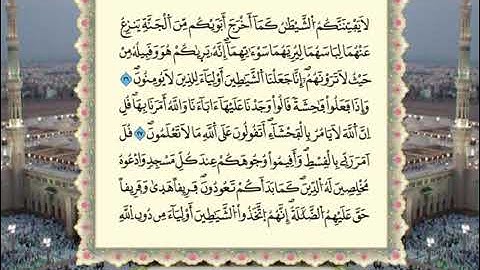 لَا يَفْتِنَنَّكُمُ الشَّيْطَٰنُ كَمَآ أَخْرَجَ أَبَوَيْكُم مِّنَ ٱلْجَنَّةِ يَنزِعُ
عَنْهُمَا لِبَاسَهُمَا لِيُرِيَهُمَا سَوْءَٰتِهِمَآ إِنَّهُۥ يَرَىٰكُمْ هُوَ وَقَبِيلُهُۥ مِنْ
حَيْثُ لَا تَرَوْنَهُمْ إِنَّا جَعَلْنَا ٱلشَّيَٰطِينَ أَوْلِيَآءَ لِلَّذِينَ لَا يُؤْمِنُونَ
وَإِذَا فَعَلُوا۟ فَٰحِشَةً قَالُوا۟ وَجَدْنَا عَلَيْهَآ ءَابَآءَنَا وَٱللَّهُ أَمَرَنَا بِهَا قُلْ
إِنَّ ٱللَّهَ لَا يَأْمُرُ بِٱلْفَحْشَآءِ أَتَقُولُونَ عَلَى ٱللَّهِ مَا لَا تَعْلَمُونَ قُلْ
أَمَرَ رَبِّى بِٱلْقِسْطِ وَأَقِيمُوا۟ وُجُوهَكُمْ عِندَ كُلِّ مَسْجِدٍ وَٱدْعُوهُ
مُخْلِصِينَ لَهُ ٱلدِّينَ كَمَا بَدَأَكُمْ تَعُودُونَ فَرِيقًا هَدَىٰ وَفَرِيقًا
حَقَّ عَلَيْهِمُ ٱلضَّلَٰلَةُ إِنَّهُمُ ٱتَّخَذُوا۟ ٱلشَّيَٰطِينَ أَوْلِيَآءَ مِن دُونِ ٱللَّهِ